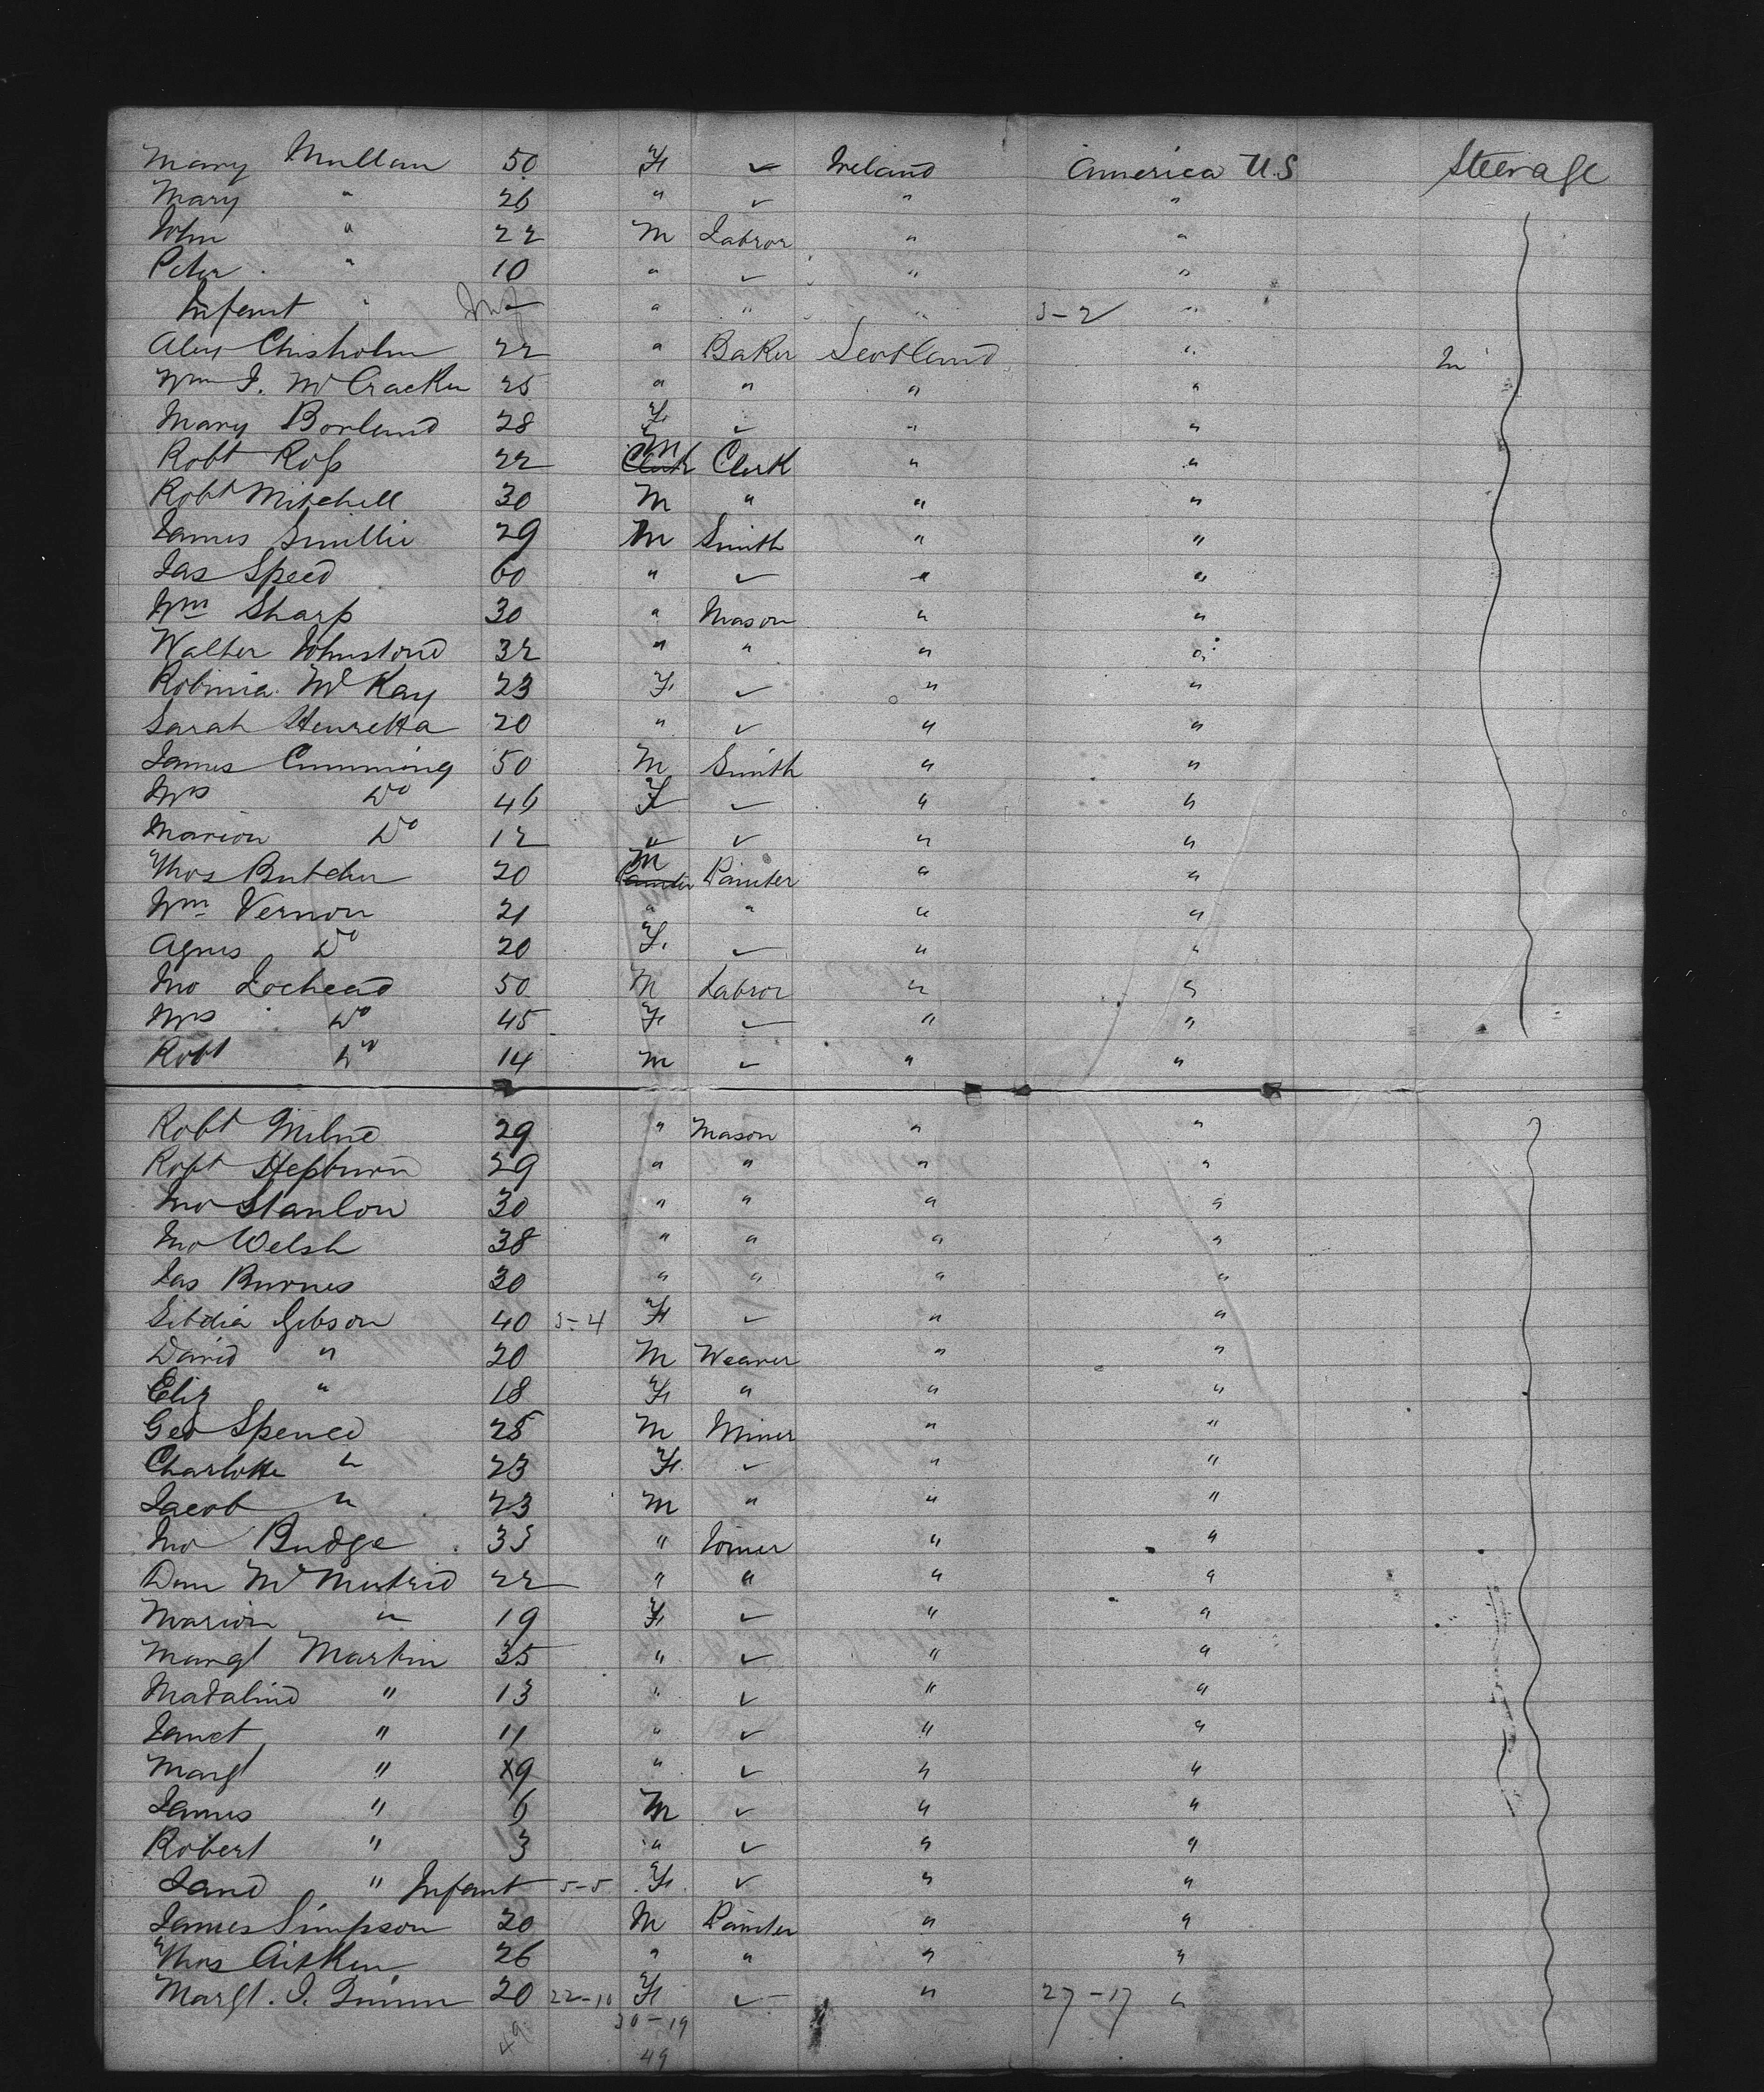 Mary Mullan 50 F ✓ Ireland America U.S Steerage
Mary " 26 " ✓ " "
John " 22 M Labror " "
Peter " 10 " ✓ " "
Infant " Inf " " " 3-2 "
Alex Chisholm 22 " Baker Scotland "
Wm J. McCracken 25 " " " "
Mary Borland 28 F ✓ " "
Robt Ross 22 M Clerk Clerk " "
Robt Mitchell 30 M " " "
James Smillie 29 M Smith " "
Jas Speed 60 " ✓ " "
Wm Sharp 30 " Mason " "
Walter Johnstone 32 " " " "
Robinia McKay 23 F ✓ " "
Sarah Henretta 20 " ✓ " "
James Cumming 50 M Smith " "
Mrs Do 46 F ✓ " "
Marion Do 12 " ✓ " "
Thos Butcher 20 M Painter Painter " "
Wm Vernon 21 " " " "
Agnes Do 20 F. ✓ " "
Jno Lochead 50 M Labror " "
Mrs Do 45 F ✓ " "
Robt Do 14 M ✓ " "
Robt Milne 29 " Mason " "
Robt Hepburn 29 " " " "
Jno Stanlon 30 " " " "
Jno Welsh 38 " " " "
Jas Burnes 30 " " " "
Gibson 40 5-4 F ✓ " "
David " 20 M Weaver " "
Eliz " 18 F " " "
Geo Spence 25 M Miner " "
Charlotte " 23 F ✓ " "
Jacob " 23 M " " "
Jno Budge 33 " Joiner " "
Dun McMutrie 22 " " " "
Marion " 19 F ✓ " "
Margt Martin 35 " ✓ " "
Madaline " 13 " ✓ " "
Janet " 11 " ✓ " "
Margt " 9 " ✓ " "
James " 6 M ✓ " "
Robert " 3 " ✓ " "
Jane " Infant 5-5 F ✓ " "
James Simpson 20 M Painter " "
Thos Aitken 26 " " " "
Margt. J. Quinn 20 22-10 F ✓ " 27-17 "
49 30-19
49